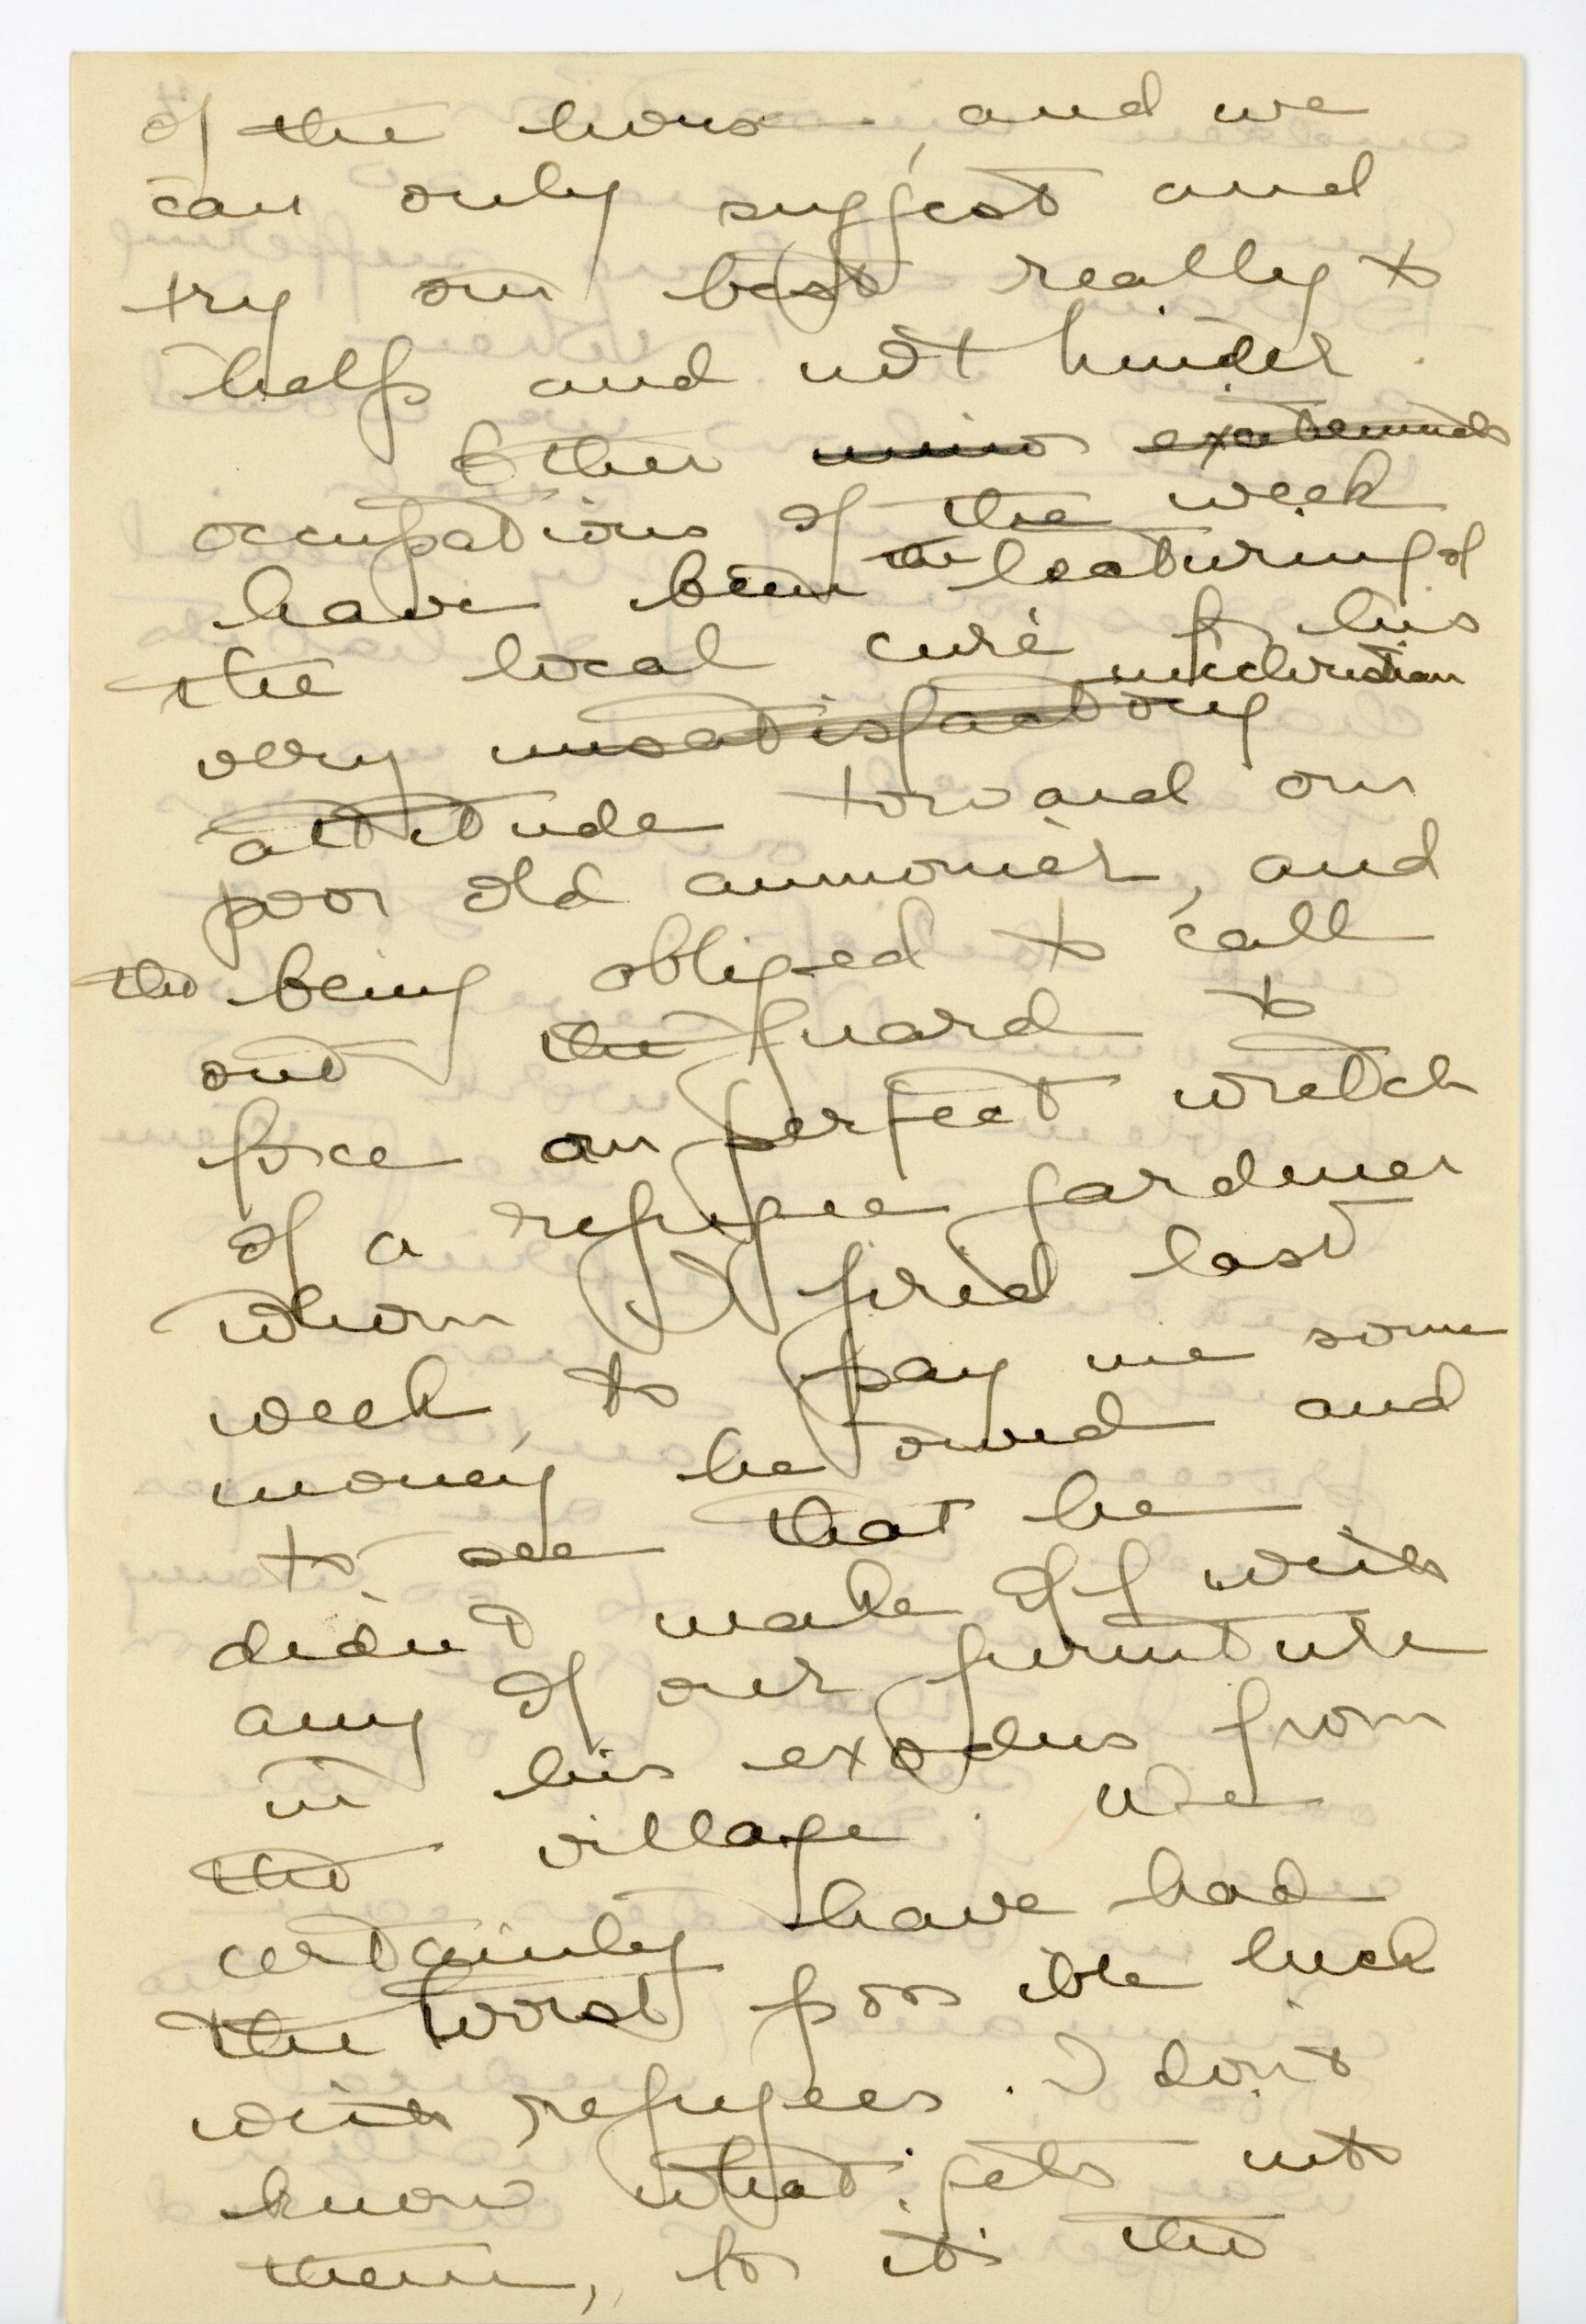 of the house, and we
can only suggest and
try our best really to
help and not hinder.
Other minor excitements
occupations of the week
have been the lecturing of
the local curé for his
very unsatisfactory unchristian
attitude toward our
poor old aumonier, and
the being obliged to call
out the guard to
force our perfect wretch
of a refugee gardener
whom I fired last
week, to pay me some
money he owed and
to see that he
didn't make off with
any of our furniture
in his exodus from
the village. We
certainly have had
the worst possible luck
with refugees. I don't
know what gets into
them, for it's the